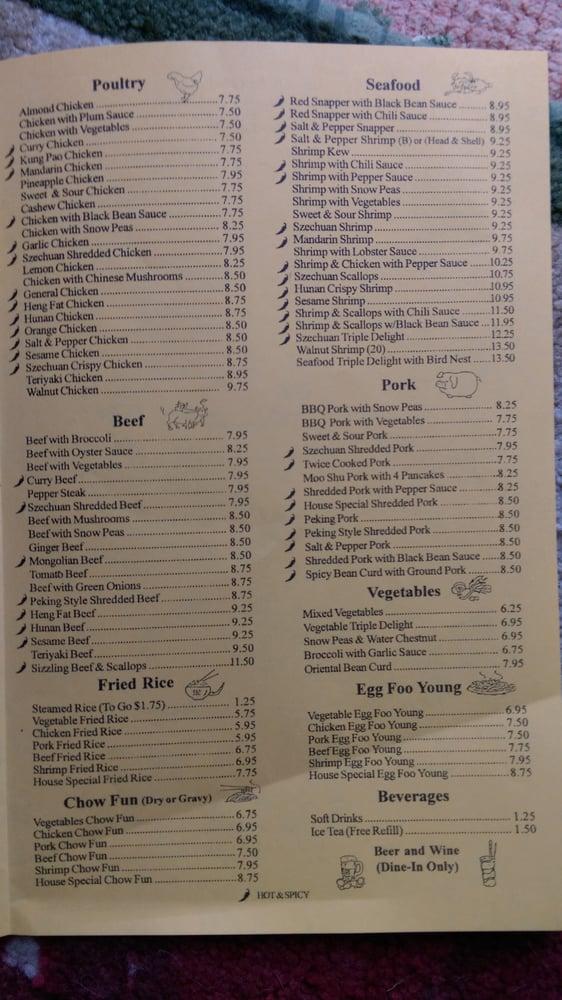 Poultry
Almond Chicken 7.75
Chicken with Plum Sauce 7.50
Chicken with Vegetables 7.50
Curry Chicken 7.50
Kung Pao Chicken 7.75
Mandarin Chicken 7.75
Pineapple Chicken 7.95
Sweet & Sour Chicken 7.75
Cashew Chicken 7.75
Chicken with Black Bean Sauce 7.75
Chicken with Snow Peas 8.25
Garlic Chicken 7.95
Szechuan Shredded Chicken 7.95
Lemon Chicken 8.25
Chicken with Chinese Mushrooms 8.50
General Chicken 8.50
Heng Fat Chicken 8.75
Hunan Chicken 8.75
Orange Chicken 8.50
Salt & Pepper Chicken 8.50
Sesame Chicken 8.50
Szechuan Crispy Chicken 8.75
Teriyaki Chicken 8.95
Walnut Chicken 9.75
Beef
Beef with Broccoli 7.95
Beef with Oyster Sauce 8.25
Beef with Vegetables 7.95
Curry Beef 7.95
Pepper Steak 7.95
Szechuan Shredded Beef 7.95
Beef with Mushrooms 8.50
Beef with Snow Peas 8.50
Ginger Beef 8.50
Mongolian Beef 8.50
Tomato Beef 8.75
Beef with Green Onions 8.75
Peking Style Shredded Beef 8.75
Heng Fat Beef 9.25
Hunan Beef 9.25
Sesame Beef 9.25
Teriyaki Beef 9.50
Sizzling Beef & Scallops 11.50
Fried Rice
Steamed Rice (To Go $1.75) 1.25
Vegetable Fried Rice 5.75
Chicken Fried Rice 5.95
Pork Fried Rice 5.95
Beef Fried Rice 6.75
Shrimp Fried Rice 6.95
House Special Fried Rice 7.75
Chow Fun (Dry or Gravy)
Vegetables Chow Fun 6.75
Chicken Chow Fun 6.95
Pork Chow Fun 6.95
Beef Chow Fun 7.50
Shrimp Chow Fun 7.95
House Special Chow Fun 8.75
Seafood
Red Snapper with Black Bean Sauce 8.95
Red Snapper with Chili Sauce 8.95
Salt & Pepper Snapper 8.95
Salt & Pepper Shrimp (B) or (Head & Shell) 9.25
Shrimp Kew 9.25
Shrimp with Chili Sauce 9.25
Shrimp with Pepper Sauce 9.25
Shrimp with Snow Peas 9.25
Shrimp with Vegetables 9.25
Sweet & Sour Shrimp 9.25
Szechuan Shrimp 9.25
Mandarin Shrimp 9.75
Shrimp with Lobster Sauce 9.75
Shrimp & Chicken with Pepper Sauce 10.25
Szechuan Scallops 10.75
Hunan Crispy Shrimp 10.95
Sesame Shrimp 10.95
Shrimp & Scallops with Chili Sauce 11.50
Shrimp & Scallops w/Black Bean Sauce 11.95
Szechuan Triple Delight 12.25
Walnut Shrimp (20) 13.50
Seafood Triple Delight with Bird Nest 13.50
Pork
BBQ Pork with Snow Peas 8.25
BBQ Pork with Vegetables 7.75
Sweet & Sour Pork 7.75
Szechuan Shredded Pork 7.95
Twice Cooked Pork 7.75
Moo Shu Pork with 4 Pancakes 8.25
Shredded Pork with Pepper Sauce 8.25
House Special Shredded Pork 8.50
Peking Pork 8.50
Peking Style Shredded Pork 8.50
Salt & Pepper Pork 8.50
Shredded Pork with Black Bean Sauce 8.50
Spicy Bean Curd with Ground Pork 8.50
Vegetables
Mixed Vegetables 6.25
Vegetable Triple Delight 6.95
Snow Peas & Water Chestnut 6.95
Broccoli with Garlic Sauce 6.75
Oriental Bean Curd 7.95
Egg Foo Young
Vegetable Egg Foo Young 6.95
Chicken Egg Foo Young 7.50
Pork Egg Foo Young 7.50
Beef Egg Foo Young 7.75
Shrimp Egg Foo Young 7.95
House Special Egg Foo Young 8.75
Beverages
Soft Drinks 1.25
Ice Tea (Free Refill) 1.50
Beer and Wine
(Dine-In Only)
HOT & SPICY